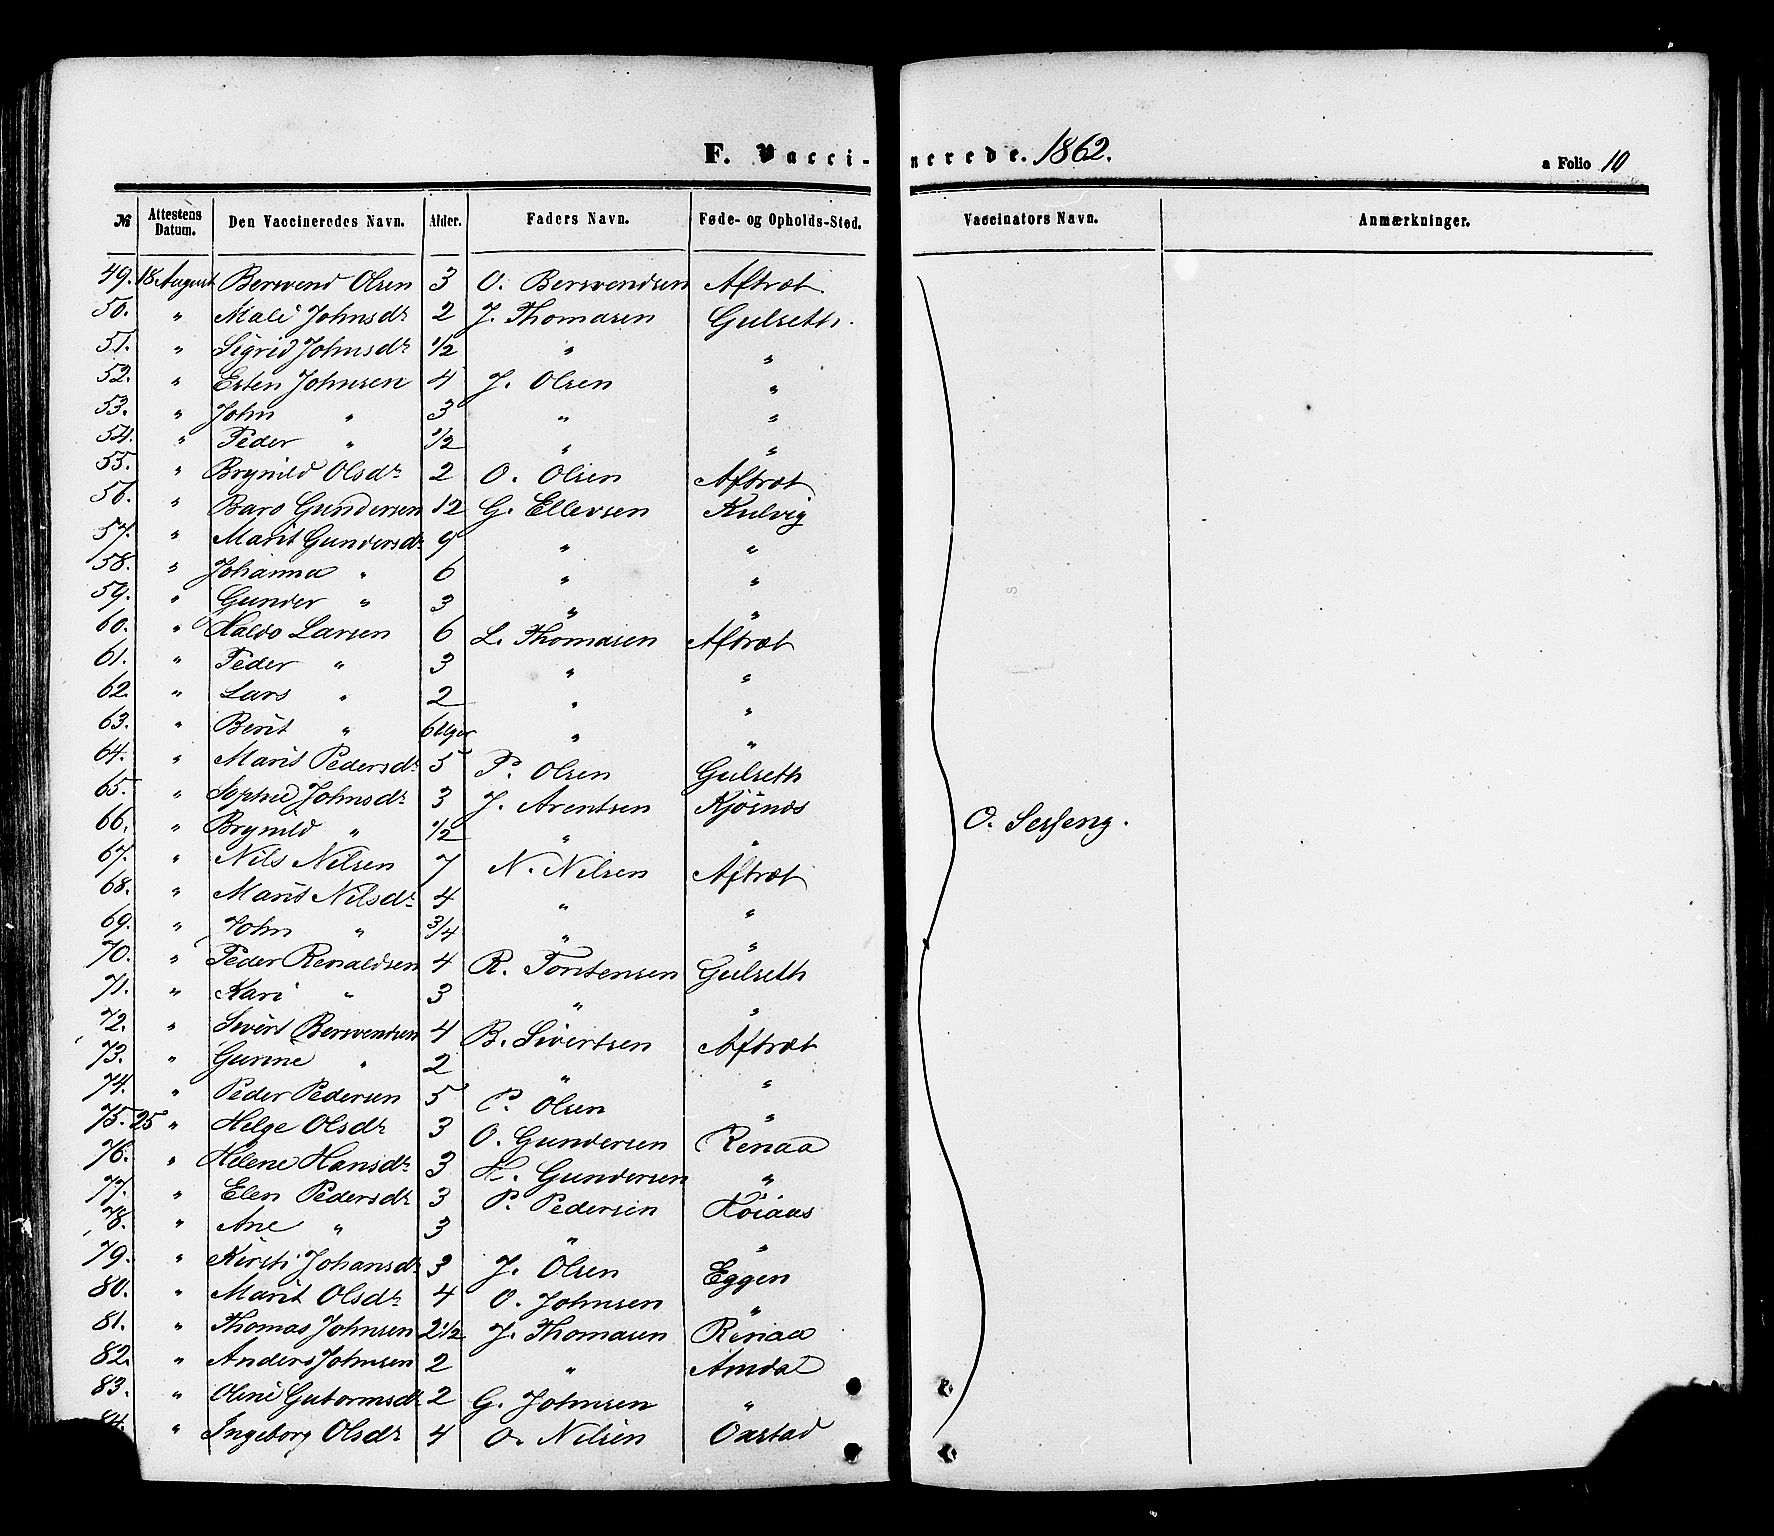 F. Vaccinerede. 1862.
a Folio 10
№ Attestens Datum. Den Vaccineredes Navn. Alder. Faders Navn. Føde- og Opholds-Sted. Vaccinators Navn. Anmærkninger.
49. 18 August Berwend Olsen 3 O. Berwendsen Aftræt
50. " Mali Johnsdr 2 J. Thomasen Gulseth
51. " Sigrid Johnsdr 1/2 " "
52. " Esten Johnsen 4 J. Olsen "
53. " John " 3 " "
54. " Peder " 1/2 " "
55. " Brynild Olsdr 2 O. Olsen Aftræt
56. " Baro Gundersen 12 G. Ellevsen Kulvig
57. " Marit Gundersdr 9 " "
58. " Johanna " 6 " "
59. " Gunder " 3 " "
60. " Haldo Larsen 6 L. Thomasen Aftræt
61. " Peder " 3 " "
62. " Lars " 2 " "
63. " Berit " 6 Uger " "
64. " Marit Pedersdr 5 P. Olsen Gulseth
65. " Sophie Johnsdr 3 J. Arentsen Kjösnæs
66. " Brynild " 1/2 " " O. Sesseng.
67. " Nils Nilsen 7 N. Nilsen Aftræt
68. " Marit Nilsdr 4 " "
69. " John " 3/4 " "
70. " Peder Renaldsen 4 R. Tostensen Gulseth
71. " Kari " 3 " "
72. " Sivert Berwendsen 4 B. Sivertsen Aftræt
73. " Gunne " 2 " "
74. " Peder Pedersen 5 P. Olsen "
75. 25 " Helge Olsdr 3 O. Gundersen Renaa
76. " Helene Hansdr 3 H. Gundersen "
77. " Elen Pedersdr 3 P. Pedersen Höiaas
78. " Ane " 3 " "
79. " Kirsti Johansdr 3 J. Olsen Eggen
80. " Marit Olsdr 4 O. Johnsen "
81. " Thomas Johnsen 2 1/2 J. Thomasen Renaa
82. " Anders Johnsen 2 " Amdal
83. " Oline Gutormsdr 2 G. Johnsen "
84. " Ingeborg Olsdr 4 O. Nilsen Oustad